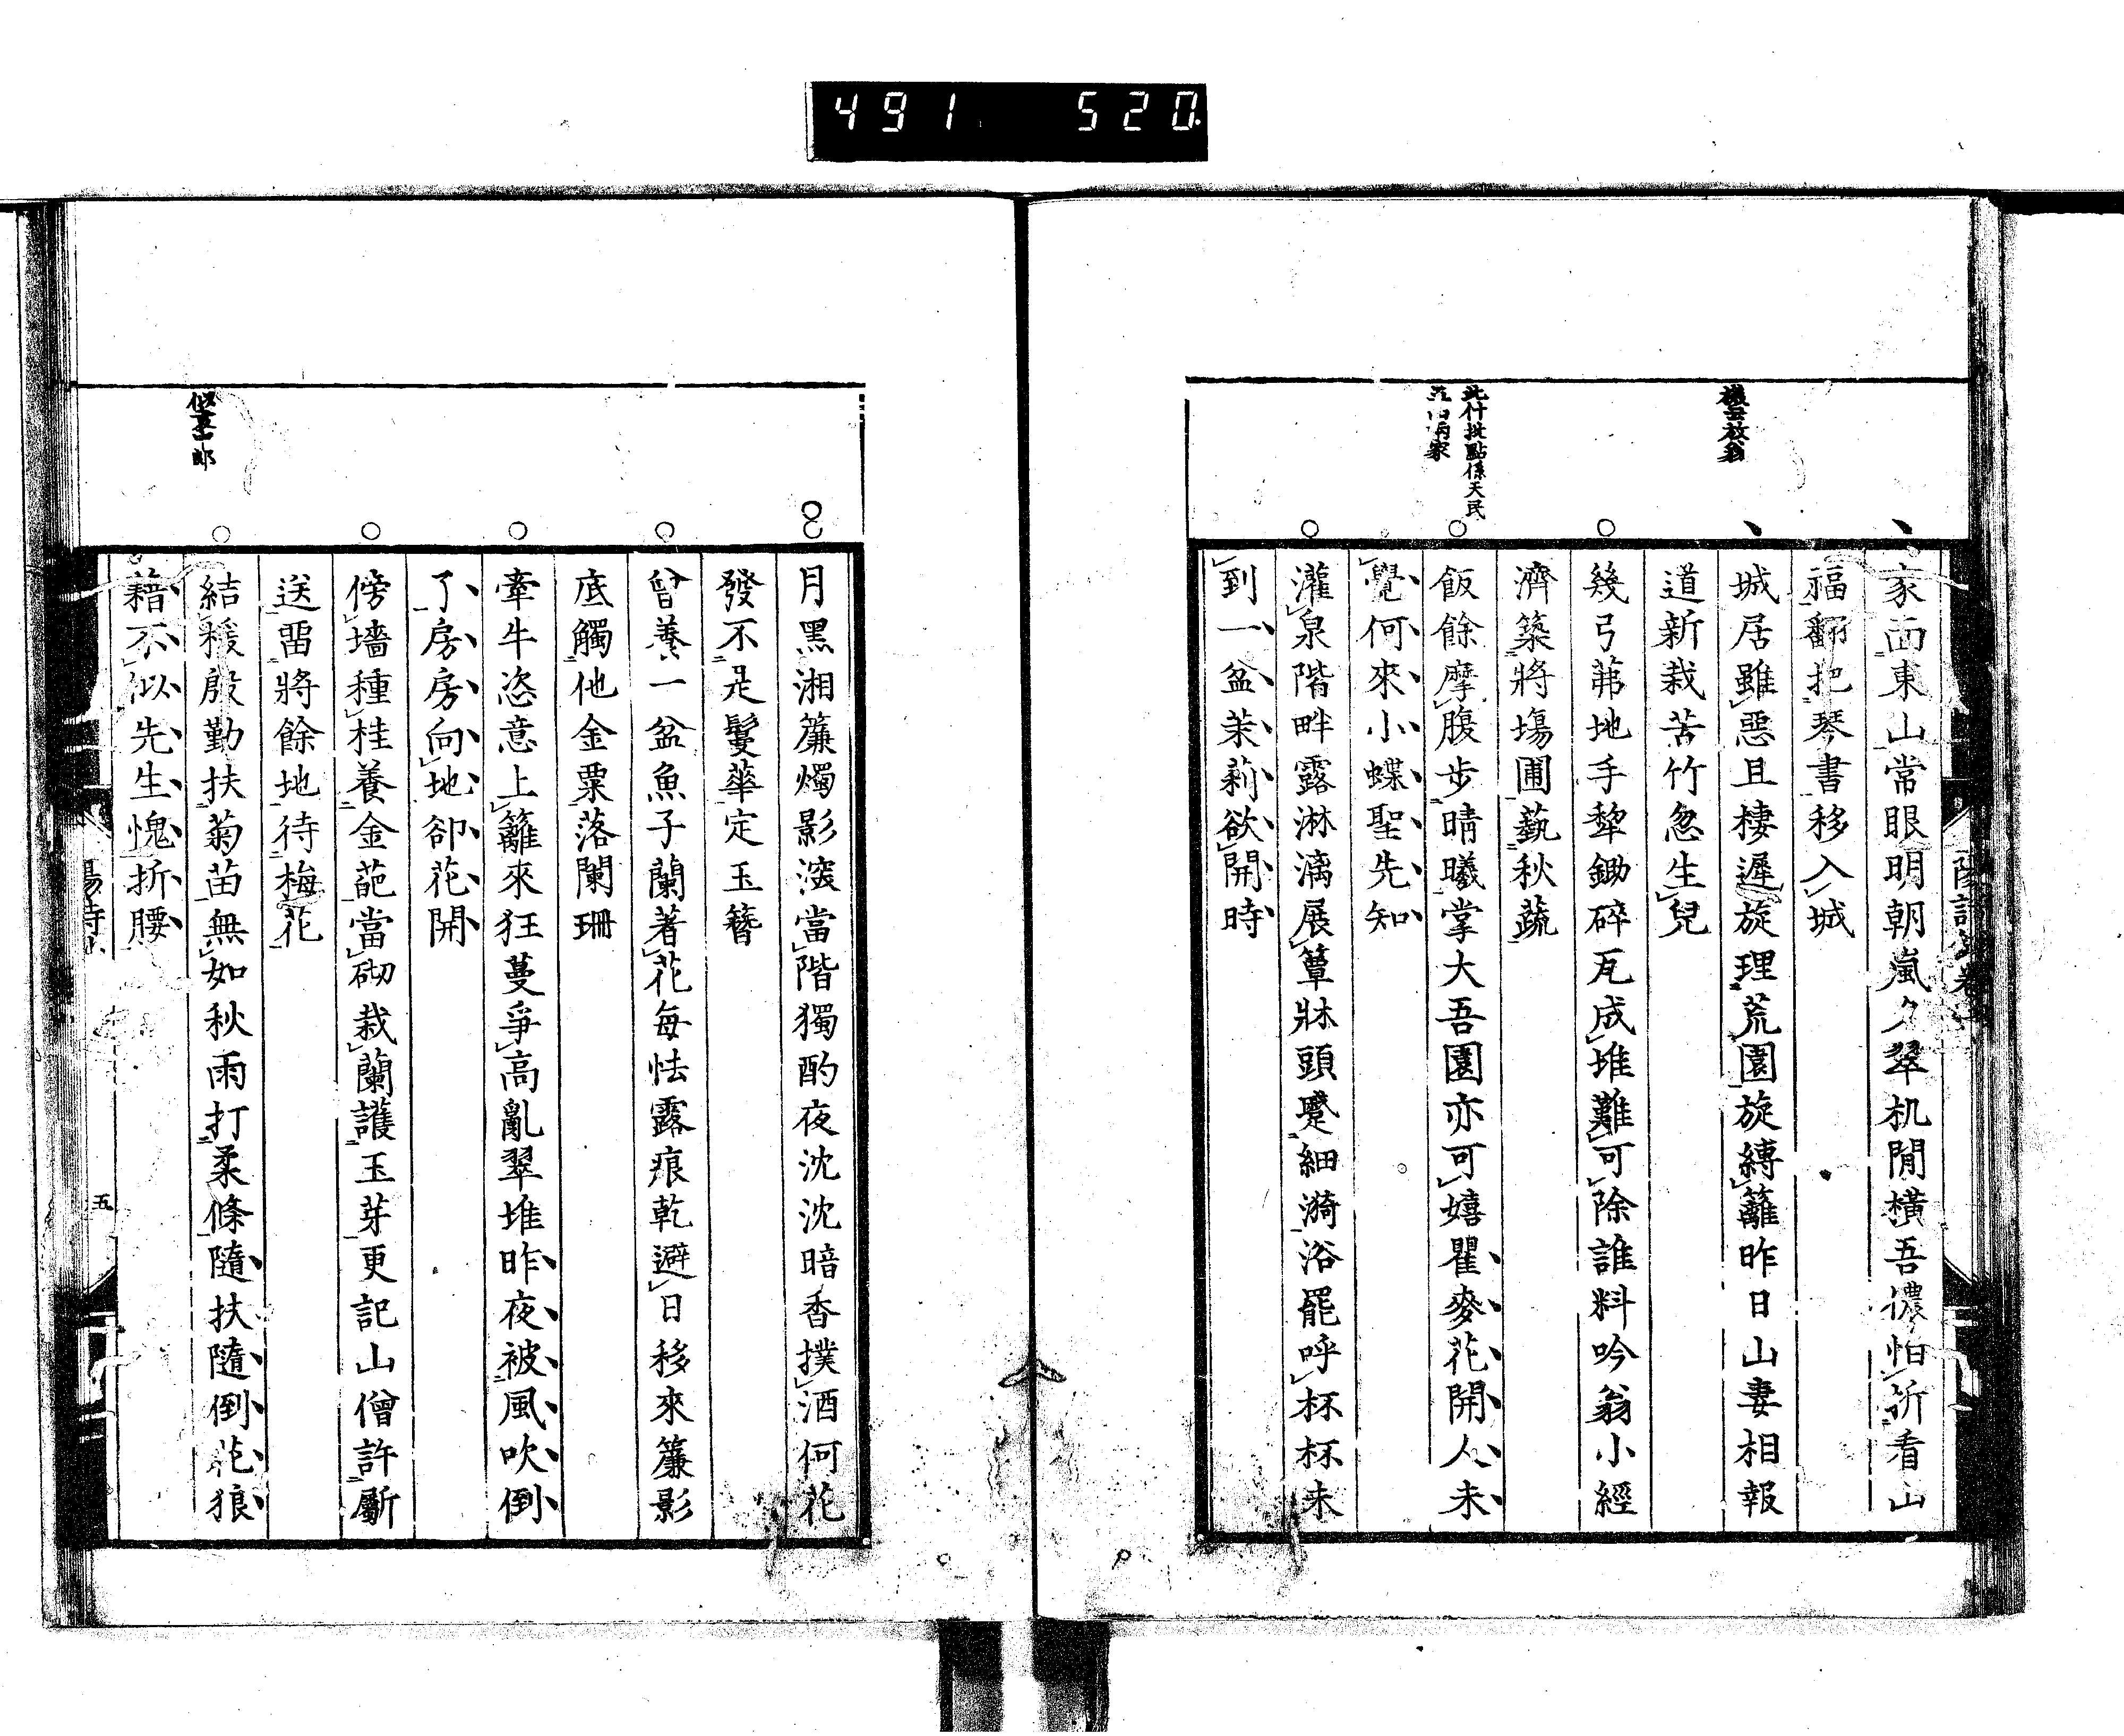 491 520
放翁
此什批點係天民
家面東山常眼明朝嵐夕翠机閒橫吾儂怕祈看山
福翻把琴書移入城
城居雖惡且棲遲旋理荒園旋縛籬昨日山妻相報
道新栽苦竹忽生兒
幾弓茀地手犂鋤碎瓦成堆難可除誰料吟翁小經
濟築將場圃藝秋蔬
飯餘摩腹步晴曦掌大吾園亦可嬉瞿麥花開人未
覺何來小蝶聖先知
灌泉階畔露淋漓展簟牀頭蹙細漪浴罷呼杯杯未
到一盆茉莉欲開時
月黑湘簾燭影深當階獨酌夜沈沈暗香撲酒何花
發不是鬘華定玉簪
曾養一盆魚子蘭著花每怯露痕乾避日移來簾影
底觸他金粟落闌珊
牽牛恣意上籬來狂蔓爭高亂翠堆昨夜被風吹倒
了房房向地卻花開
傍墻種桂養金葩當砌栽蘭護玉芽更記山僧許斸
送畱將餘地待梅花
結稷殷勤扶菊苗無如秋雨打柔條隨扶隨倒花狼
藉不似先生愧折腰
五